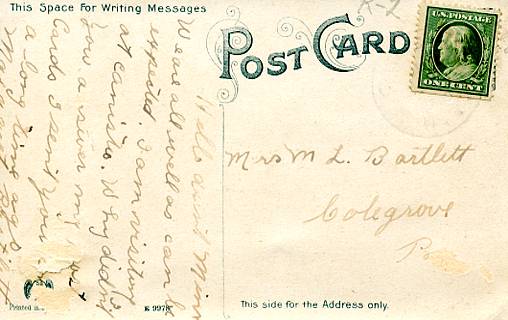 This Space For Writing Messages
POST CARD
U.S. POSTAGE
ONE CENT
Hello aunt Minn
We are all well as can be
expected. I am visiting
at Canisteo. Why didn't
you answer my
Cards I sent you
a long time ago
Mrs M L. Bartlett
Colegrove
Printed in
E 9978
This side for the Address only.